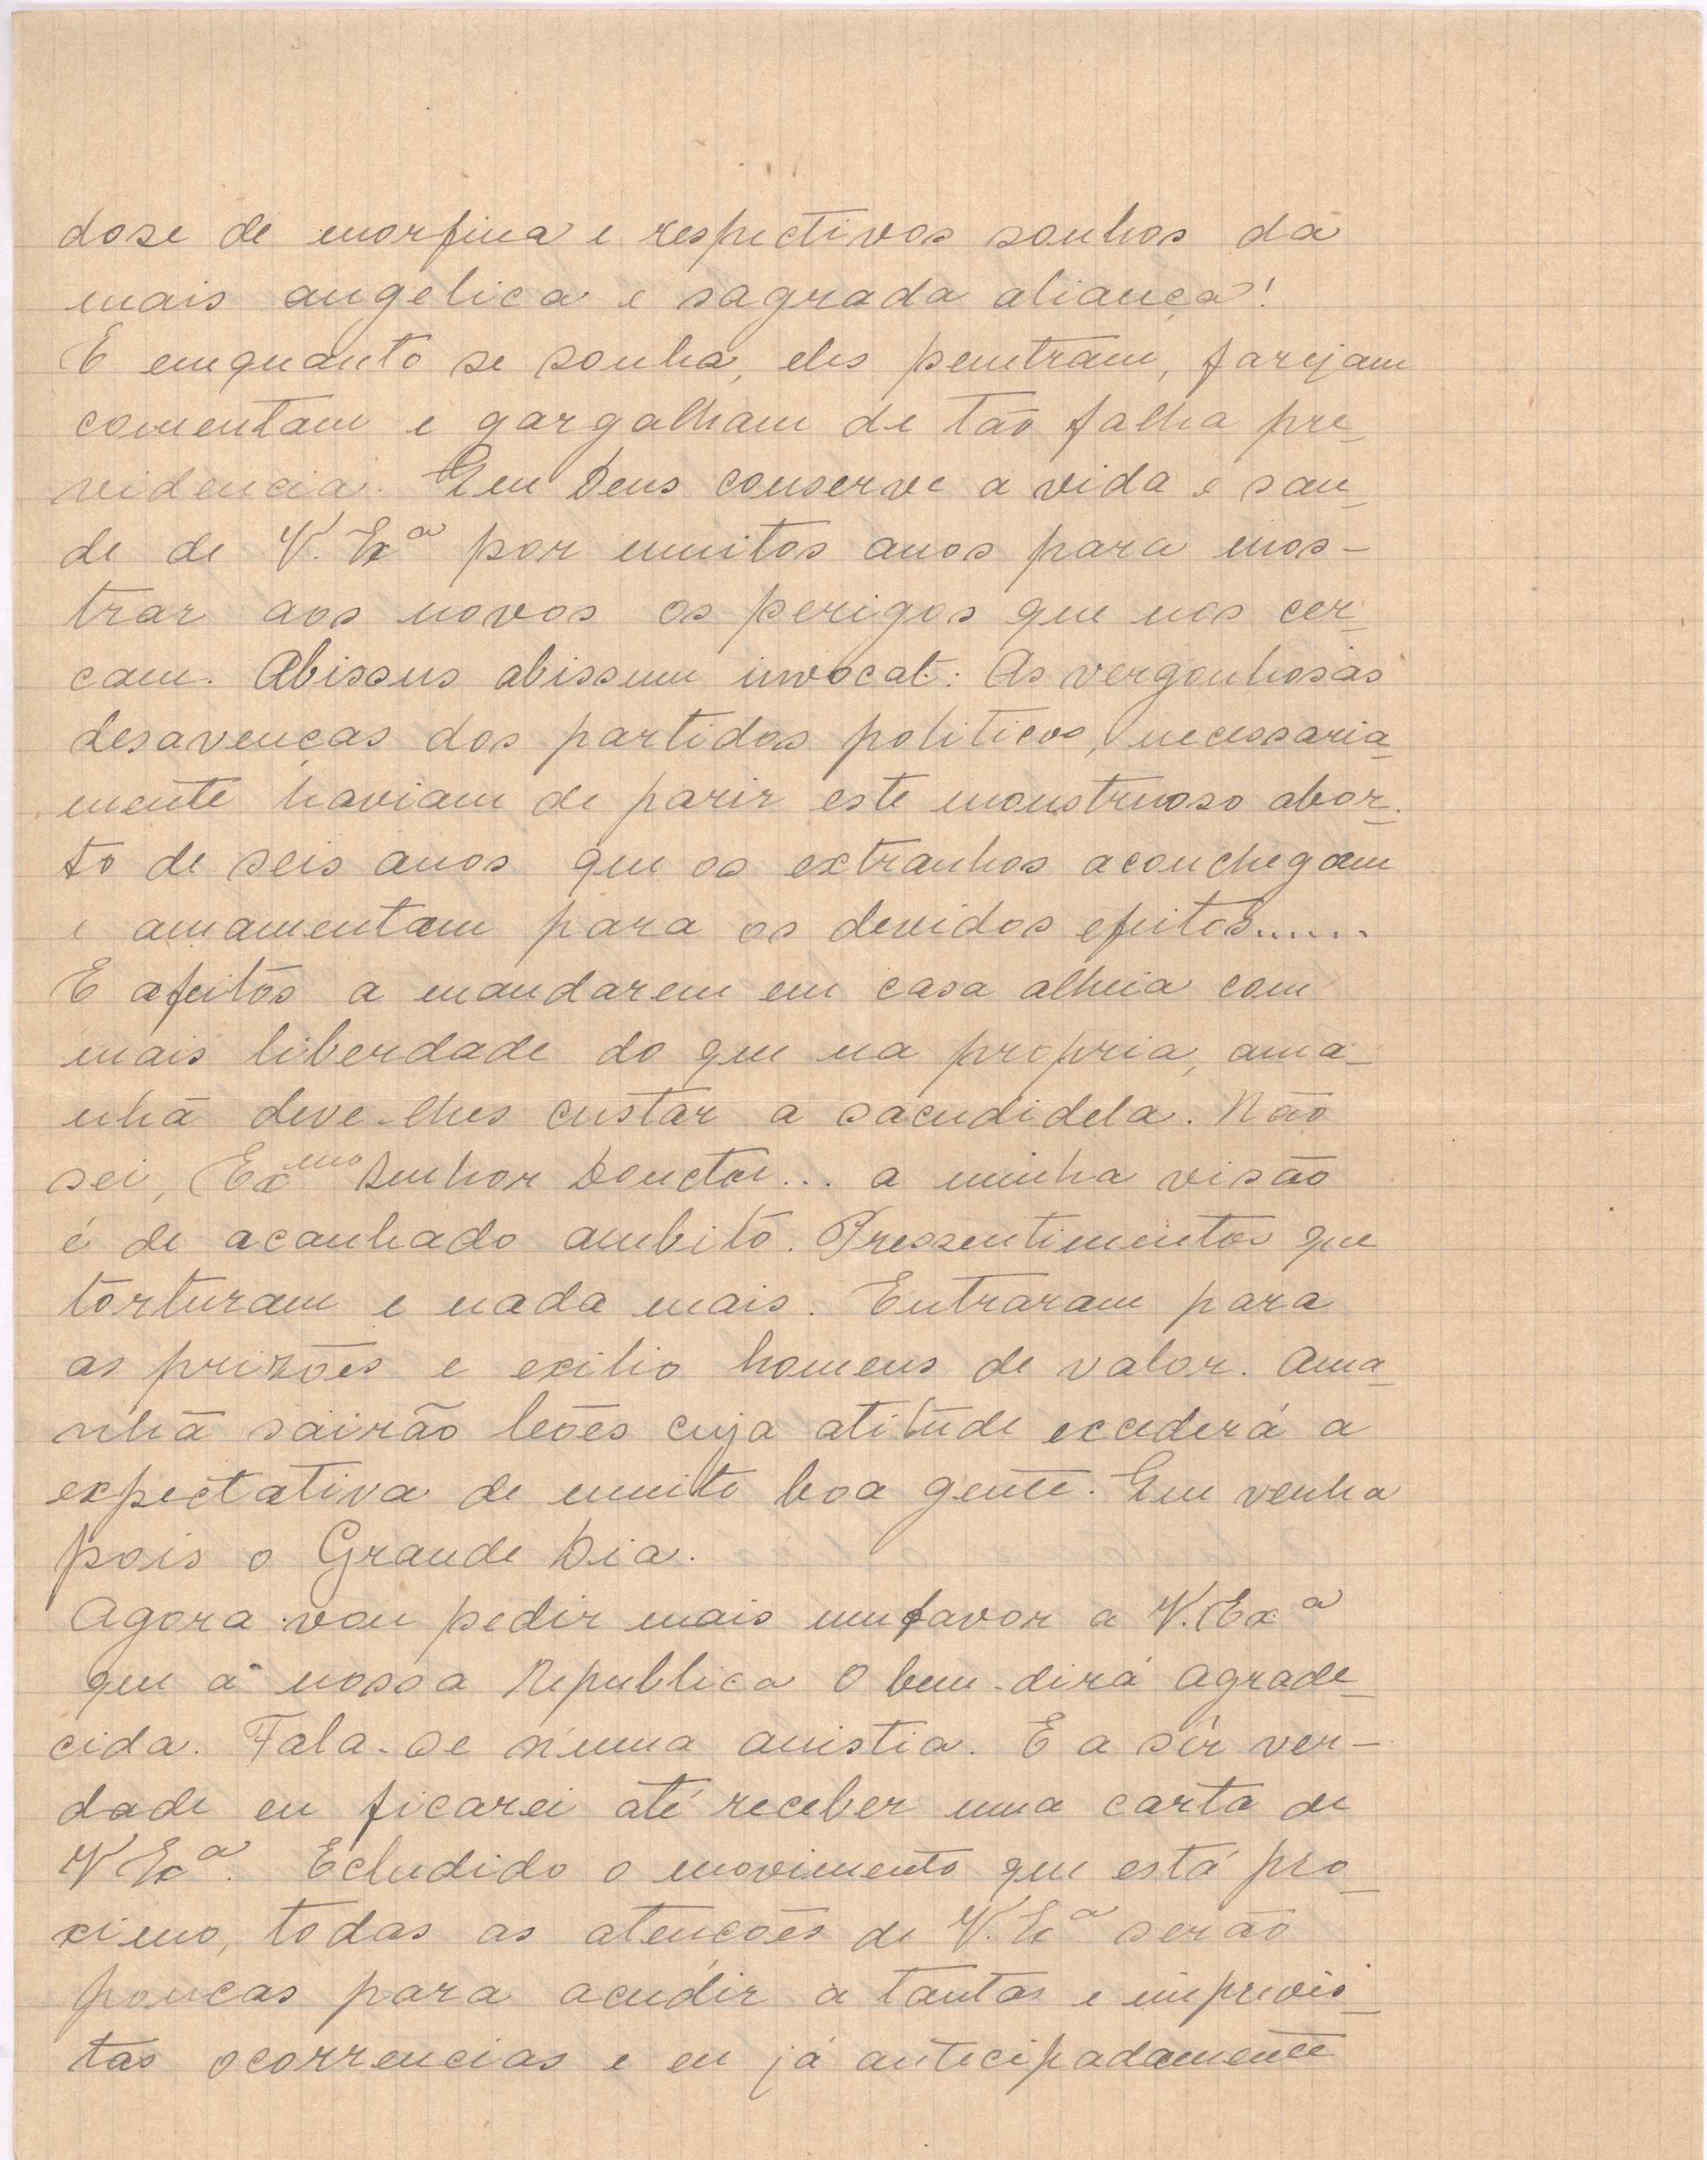 dose de morfina e respectivos sonhos da
mais angelica e sagrada aliança!
E emquanto se sonha, eles penetram, farejam
comentam e gargalham de tão falha pre-
videncia. Que Deus conserve a vida e sau-
de de V. Exª por muitos anos para mos-
trar aos novos os perigos que nos cer-
cam. Abissus abissum invocat: As vergonhosas
desavenças dos partidos politicos, necessaria-
mente haviam de parir este monstruoso abor-
to de seis anos que os extranhos aconchegam
e amamentam para os devidos efeitos......
E afeitos a mandarem em casa alheia com
mais liberdade do que na propria, ama-
nhã deve-lhes custar a sacudidela. Não
sei, Exmo Senhor Doutor... a minha visão
é de acanhado ambito. Pressentimentos que
torturam e nada mais. Entraram para
as prizões e exilio homens de valor. Ama-
nhã sairão leões cuja atitude excederá a
expectativa de muito boa gente. Que venha
pois o Grande Dia.
Agora vou pedir mais um favor a V. Exª
que a nossa Republica o bem-dirá agrade-
cida. Fala-se n'uma anistia. E a sêr ver-
dade eu ficarei até receber uma carta de
V Exª. Ecludido o movimento que está pro-
ximo, todas as atenções de V. Exª serão
poucas para acudir a tantas e imprevis-
tas ocorrencias e eu já antecipadamente